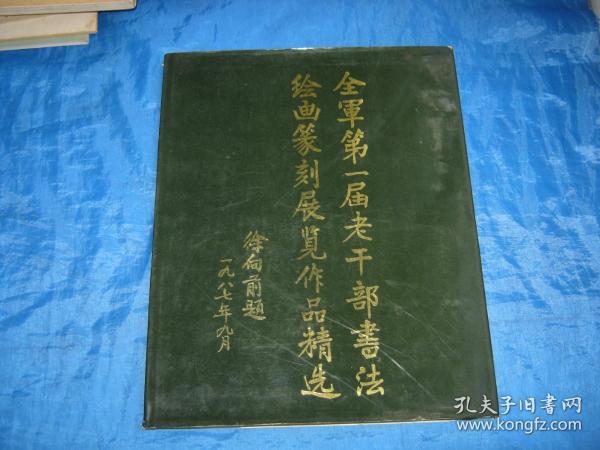 全軍第一届老干部書法
绘画篆刻展览作品精选
徐向前題
一九八七年九月
孔夫子旧書网
www.kongfz.com